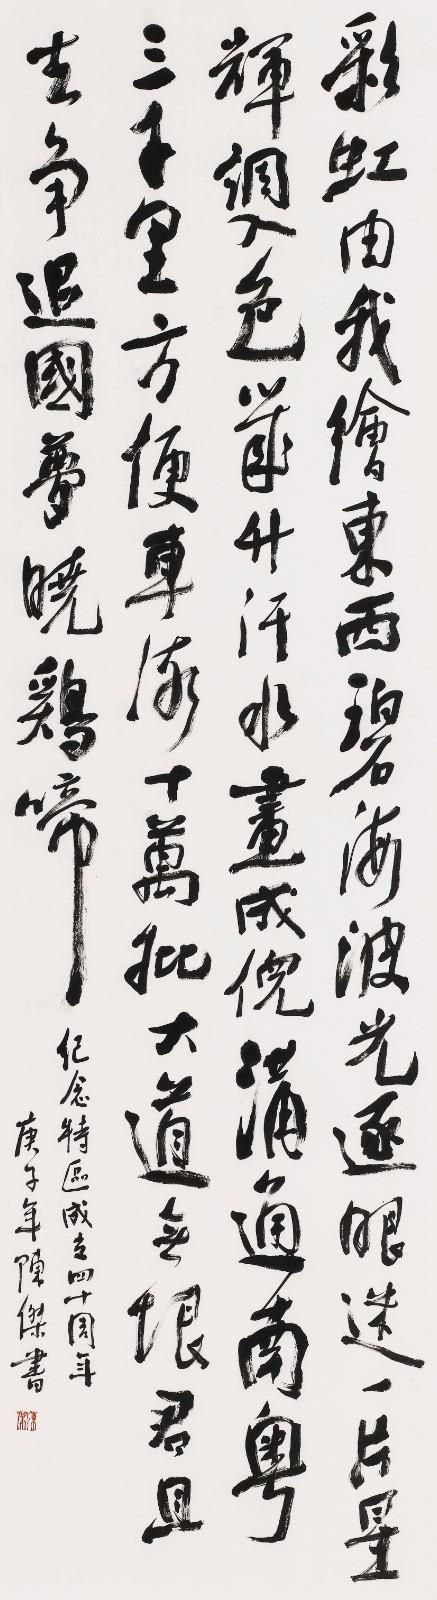 彩虹由我繪東西碧海波光逐眼迷一片星
輝調入色幾升汗水畫成倪溝通南粵
三千里方便車流十萬批大道無垠君且
去爭追國夢曉鷄啼
紀念特區成立四十周年
庚子年陳傑書